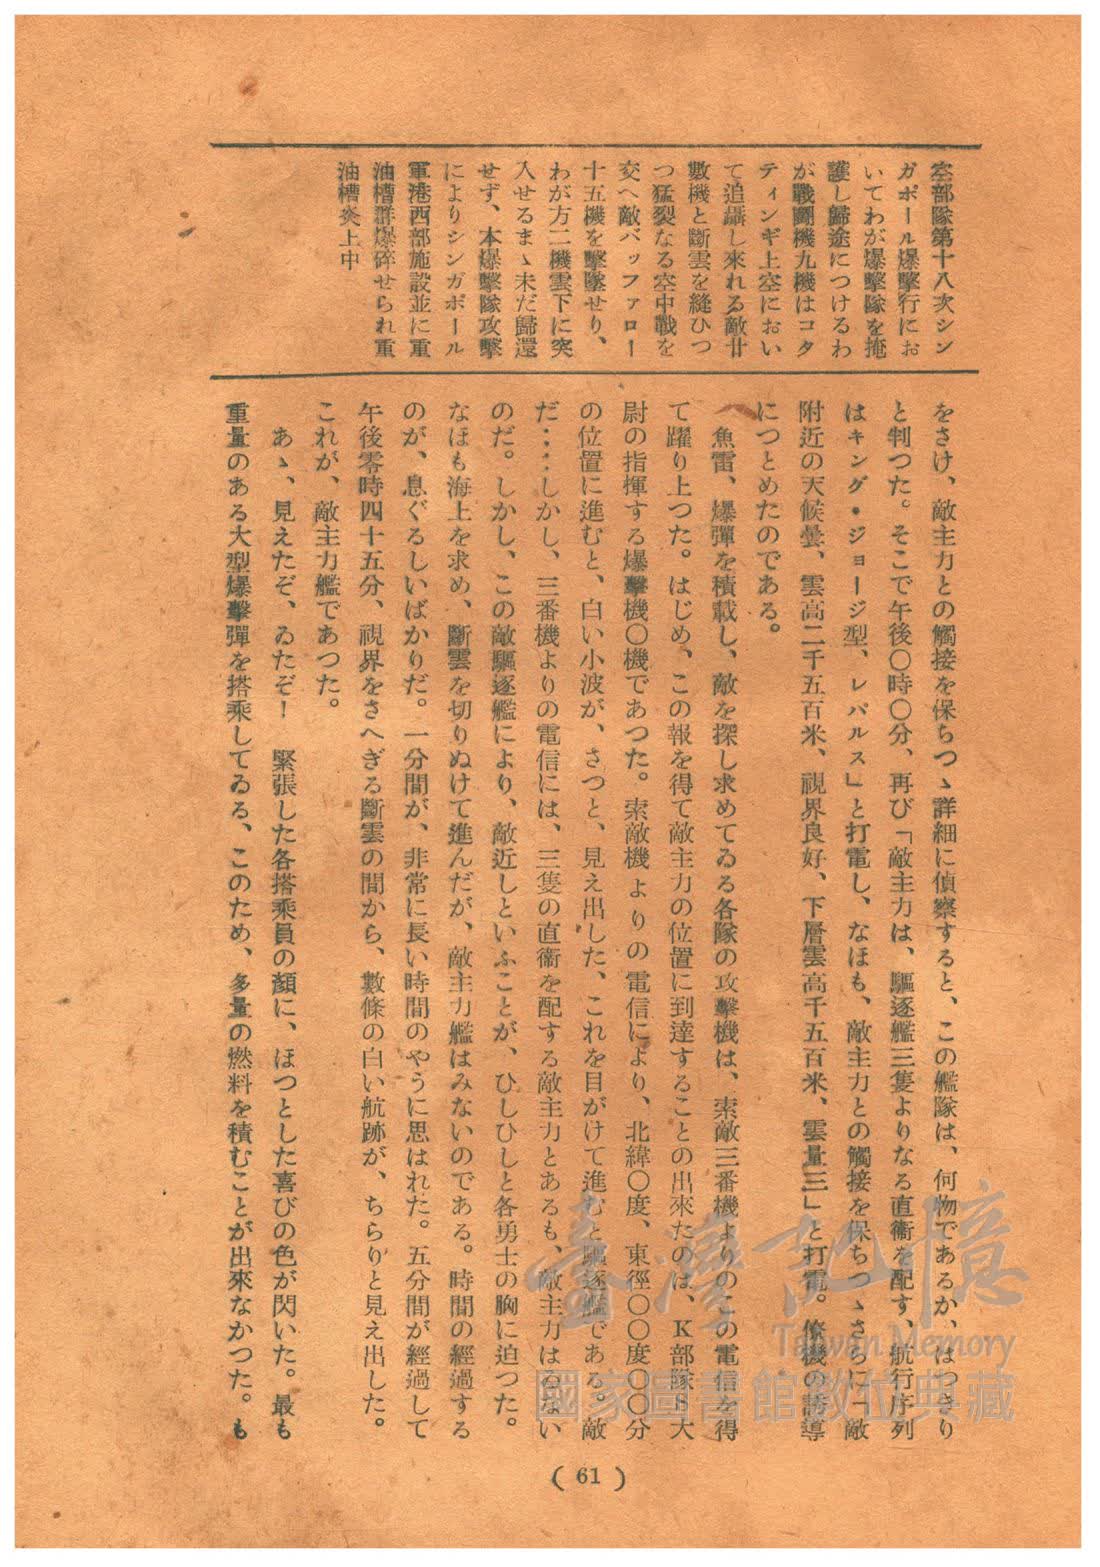 空部隊第十八次シン
ガポール爆擊行にお
いてわが爆擊隊を掩
護し歸途につけるわ
が戰鬪機九機はコタ
ティンギ上空におい
て追躡し來れる敵廿
數機と斷雲を縫ひつ
つ猛裂なる空中戰を
交へ敵バッファロー
十五機を擊墜せり、
わが方二機雲下に突
入せるまゝ未だ歸還
せず、本爆擊隊攻擊
によりシンガポール
軍港西部施設並に重
油槽群爆碎せられ重
油槽炎上中
をさけ、敵主力との觸接を保ちつゝ詳細に偵察すると、この艦隊は、何物であるか、はつきり
と判つた。そこで午後〇時〇分、再び「敵主力は、驅逐艦三隻よりなる直衞を配す、航行序列
はキング・ジョージ型、レパルス」と打電し、なほも、敵主力との觸接を保ちつゝさらに「敵
附近の天候曇、雲高二千五百米、視界良好、下層雲高千五百米、雲量三」と打電。僚機の誘導
につとめたのである。
魚雷、爆彈を積載し、敵を探し求めてゐる各隊の攻擊機は、索敵三番機よりのこの電信を得
て躍り上つた。はじめ、この報を得て敵主力の位置に到達することの出來たのは、K部隊S大
尉の指揮する爆擊機〇機であつた。索敵機よりの電信により、北緯〇度、東徑〇〇度〇〇分
の位置に進むと、白い小波が、さつと、見え出した、これを目がけて進むと驅逐艦である。敵
だ‥‥しかし、三番機よりの電信には、三隻の直衞を配する敵主力とあるも、敵主力はゐない
のだ。しかし、この敵驅逐艦により、敵近しといふことが、ひしひしと各勇士の胸に迫つた。
なほも海上を求め、斷雲を切りぬけて進んだが、敵主力艦はみないのである。時間の經過する
のが、息ぐるしいばかりだ。一分間が、非常に長い時間のやうに思はれた。五分間が經過して
午後零時四十五分、視界をさへぎる斷雲の間から、數條の白い航跡が、ちらりと見え出した。
これが、敵主力艦であつた。
あゝ、見えたぞ、ゐたぞ！　緊張した各搭乘員の顏に、ほつとした喜びの色が閃いた。最も
重量のある大型爆擊彈を搭乘してゐる、このため、多量の燃料を積むことが出來なかつた。も
( 61 )
臺灣記憶
Taiwan Memory
國家圖書館數位典藏